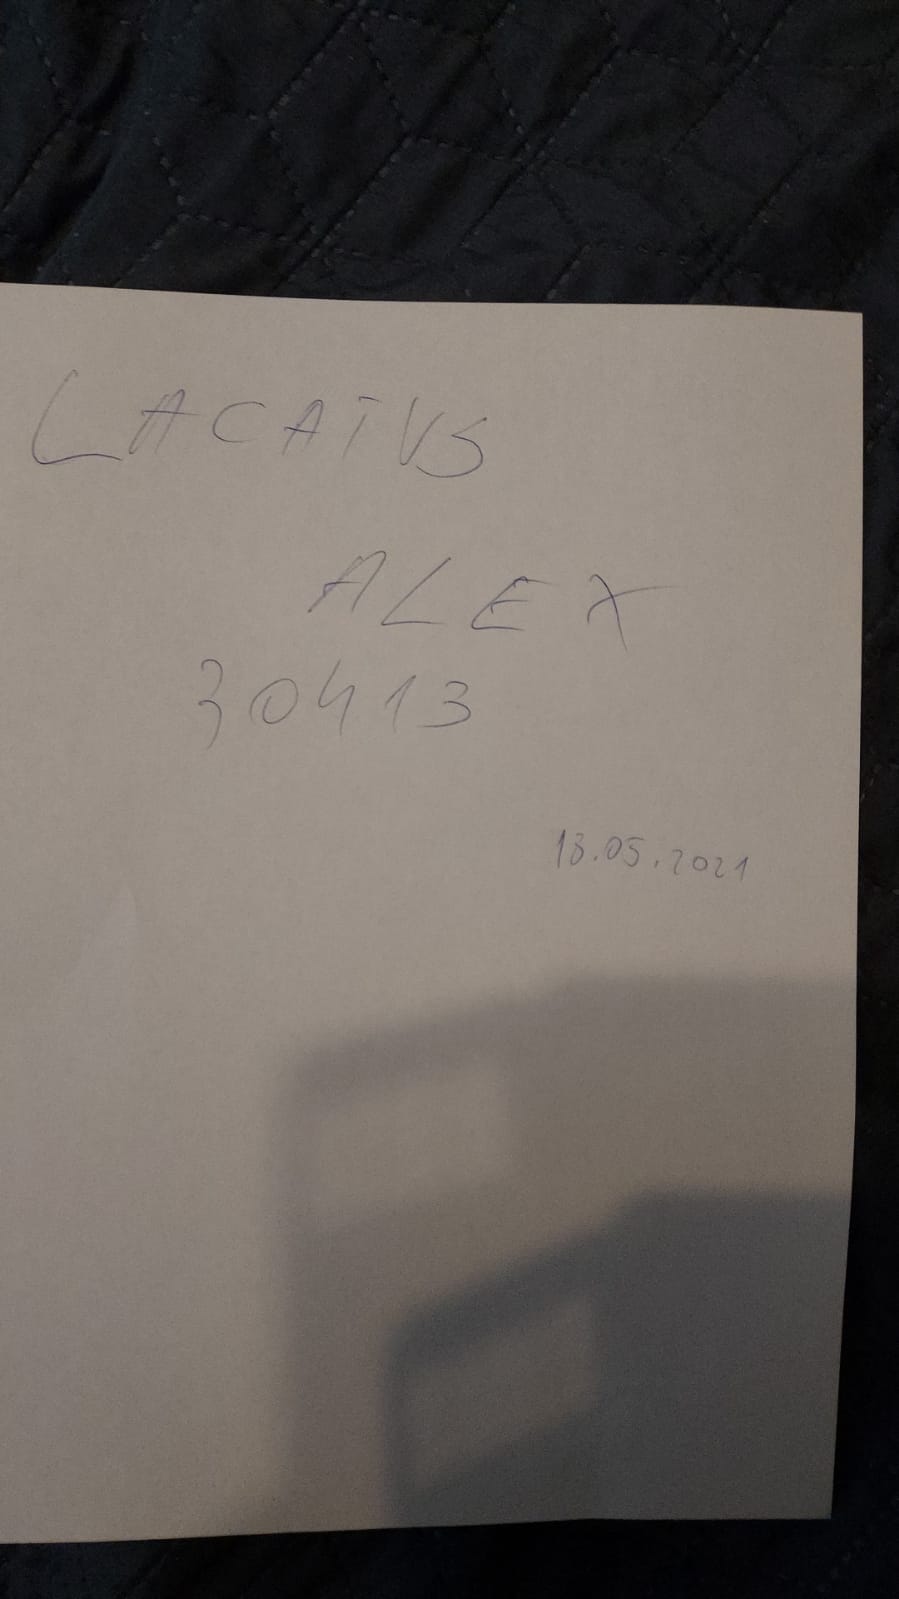 LACATUS
ALEX
30413
18.05.2021